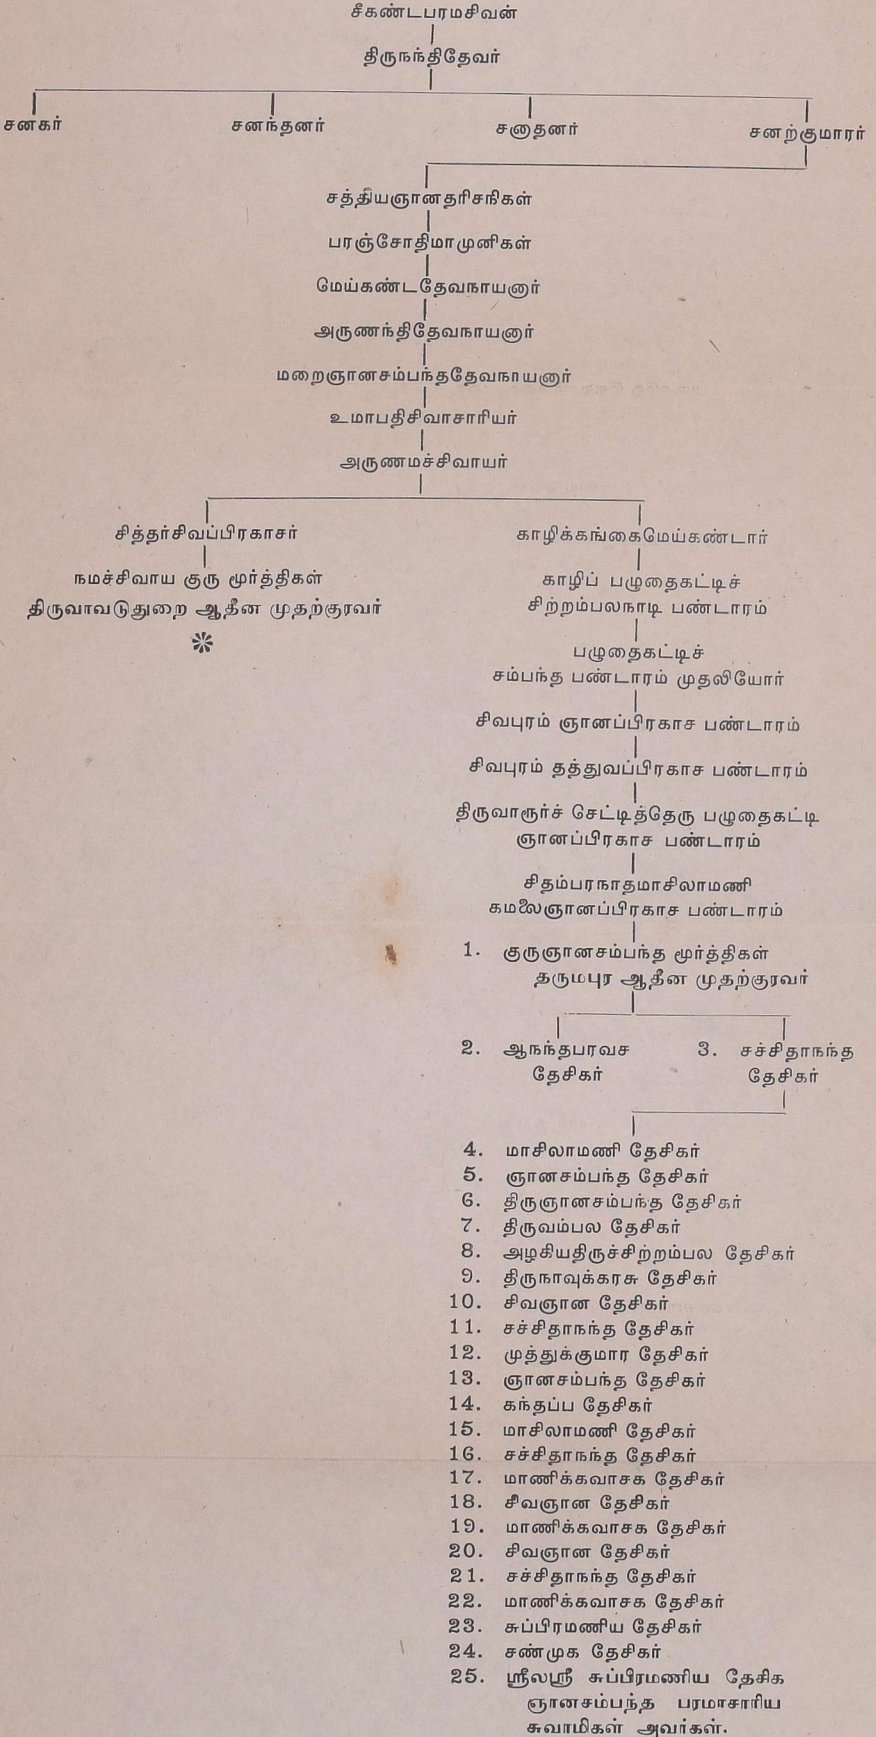 சீகண்டபரமசிவன்
திருநந்திதேவர்
சனகர் சனந்தனர் சனாதனர் சனற்குமாரர்
சத்தியஞானதரிசநிகள்
பரஞ்சோதிமாமுனிகள்
மேய்கண்டதேவநாயனார்
அருணந்திதேவநாயனார்
மறைஞானசம்பந்ததேவநாயனார்
உமாபதிசிவாசாரியர்
அருணமச்சிவாயர்
சித்தர்சிவப்பிரகாசர்
நமச்சிவாய குரு மூர்த்திகள்
திருவாவடுதுறை ஆதீன முதற்குரவர்
காழிக்கங்கைமேய்கண்டார்
காழிப் பழுதைகட்டிச்
சிற்றம்பலநாடி பண்டாரம்
பழுதைகட்டிச்
சம்பந்த பண்டாரம் முதலியோர்
சிவபுரம் ஞானப்பிரகாச பண்டாரம்
சிவபுரம் தத்துவப்பிரகாச பண்டாரம்
திருவாரூர்ச் சேட்டித்தேரு பழுதைகட்டி
ஞானப்பிரகாச பண்டாரம்
சிதம்பரநாதமாசிலாமணி
கமலைஞானப்பிரகாச பண்டாரம்
1. குருஞானசம்பந்த மூர்த்திகள்
தருமபுர ஆதீன முதற்குரவர்
2. ஆநந்தபரவச
தேசிகர்
3. சச்சிதாநந்த
தேசிகர்
4. மாசிலாமணி தேசிகர்
5. ஞானசம்பந்த தேசிகர்
6. திருஞானசம்பந்த தேசிகர்
7. திருவம்பல தேசிகர்
8. அழகியதிருச்சிற்றம்பல தேசிகர்
9. திருநாவுக்கரசு தேசிகர்
10. சிவஞான தேசிகர்
11. சச்சிதாநந்த தேசிகர்
12. முத்துக்குமார தேசிகர்
13. ஞானசம்பந்த தேசிகர்
14. கந்தப்ப தேசிகர்
15. மாசிலாமணி தேசிகர்
16. சச்சிதாநந்த தேசிகர்
17. மாணிக்கவாசக தேசிகர்
18. சிவஞான தேசிகர்
19. மாணிக்கவாசக தேசிகர்
20. சிவஞான தேசிகர்
21. சச்சிதாநந்த தேசிகர்
22. மாணிக்கவாசக தேசிகர்
23. சுப்பிரமணிய தேசிகர்
24. சண்முக தேசிகர்
25. ஸ்ரீலஸ்ரீ சுப்பிரமணிய தேசிக
ஞானசம்பந்த பரமாசாரிய
சுவாமிகள் அவர்கள்.